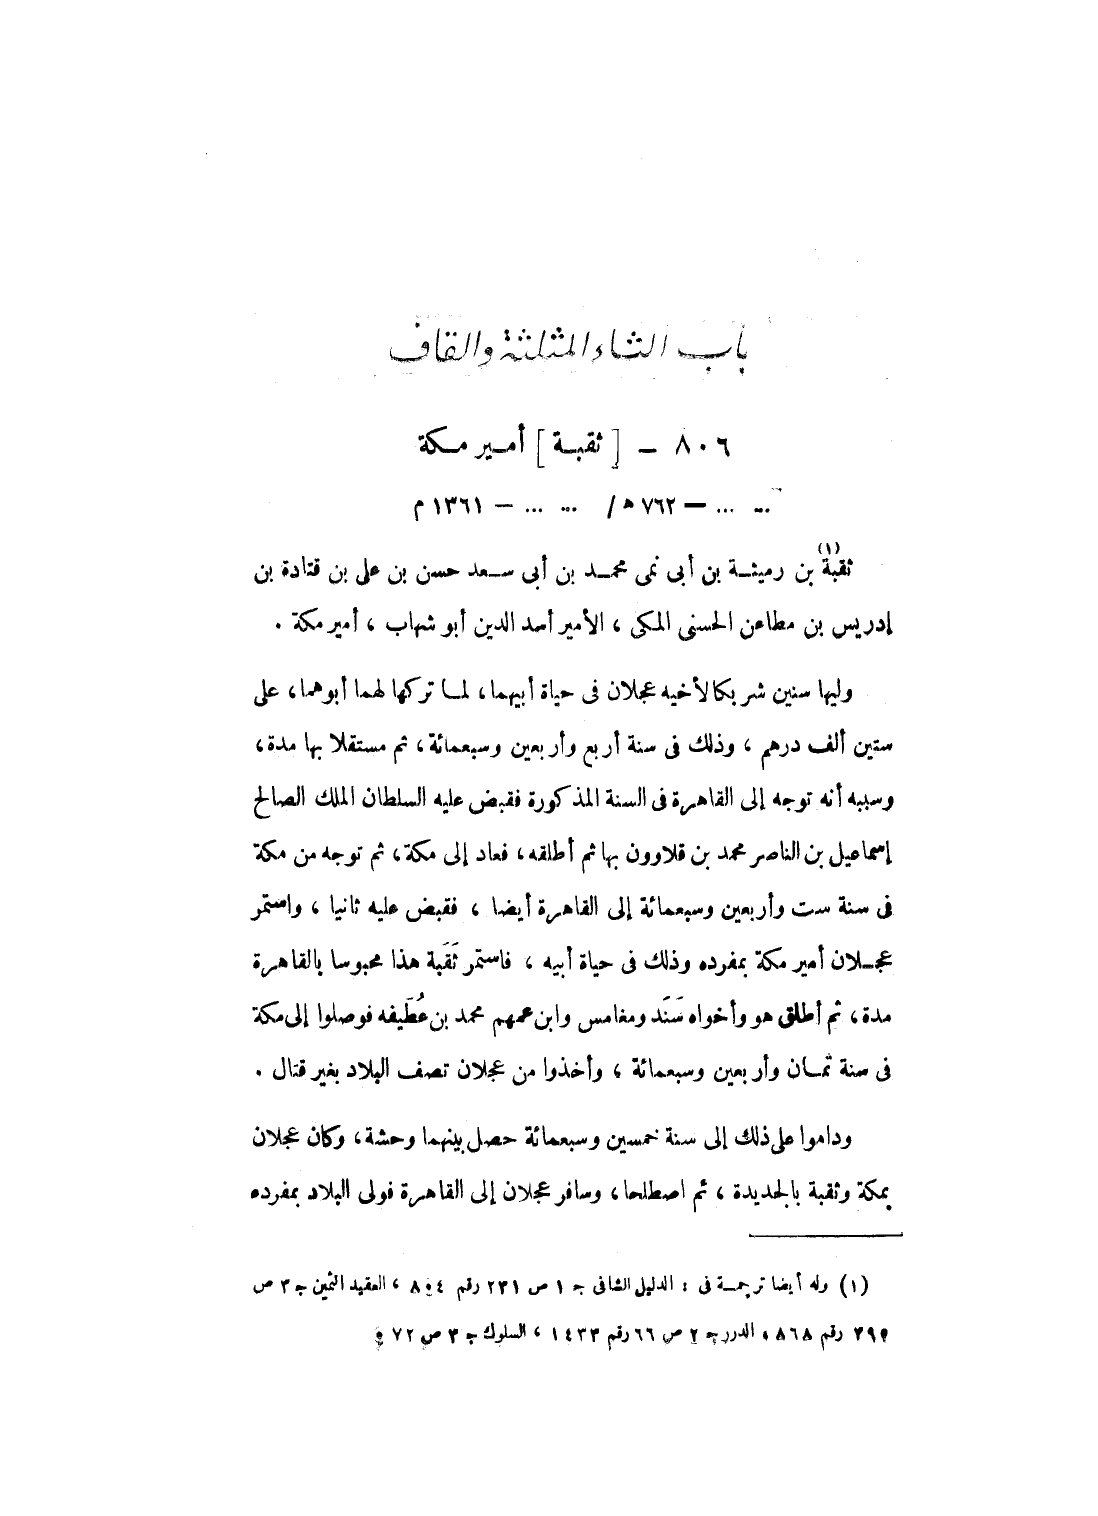 باب الثاء المثلثة والقاف
٨٠٦ – [ ثقبة ] أمير مكة
... ... – ٧٦٢ ه / ... ... – ١٣٦١ م
ثقبة(١) بن رميثة بن أبى نمى محمد بن أبى سعد حسن بن على بن قتادة بن
إدريس بن مطاعن الحسنى المكى ، الأمير أسد الدين أبو شهاب ، أمير مكة .
وليها سنين شريكا لأخيه عجلان فى حياة أبيهما ، لما تركها لهما أبوهما ، على
ستين ألف درهم ، وذلك فى سنة أربع وأربعين وسبعمائة ، ثم مستقلا بها مدة ،
وسببه أنه توجه إلى القاهرة فى السنة المذكورة فقبض عليه السلطان الملك الصالح
إسماعيل بن الناصر محمد بن قلاوون بها ثم أطلقه ، فعاد إلى مكة ، ثم توجه من مكة
فى سنة ست وأربعين وسبعمائة إلى القاهرة أيضا ، فقبض عليه ثانيا ، واستمر
عجلان أمير مكة بمفرده وذلك فى حياة أبيه ، فاستمر ثَقَبة هذا محبوسا بالقاهرة
مدة ، ثم أطلق هو وأخواه سَنَد ومغامس وابن عمهم محمد بن عُطَيفه فوصلوا إلى مكة
فى سنة ثمان وأربعين وسبعمائة ، وأخذوا من عجلان نصف البلاد بغير قتال .
وداموا على ذلك إلى سنة خمسين وسبعمائة حصل بينهما وحشة ، وكان عجلان
بمكة وثقبة بالجديدة ، ثم اصطلحا ، وسافر عجلان إلى القاهرة فولى البلاد بمفرده
(١) وله أيضا ترجمة فى : الدليل الشافى ج ١ ص ٢٣١ رقم ٨٠٤ ، العقيد الثمين ج ٣ ص
٣٩٥ رقم ٨٦٨ ، الدرر ج ٢ ص ٦٦ رقم ١٤٣٣ ، السلوك ج ٣ ص ٧٢ .